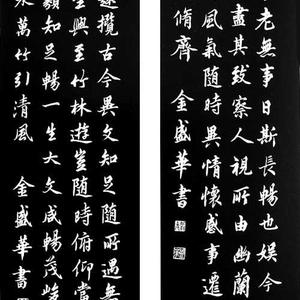 老無事日斯長暢也娱今
盡其致察人視所由幽蘭
風氣随時異情懷感事遷
脩齊 金盛華書
攬古今異文知足随所遇無
興至竹林遊豈随時俯仰當
類知足暢一生大文成暢茂峻
萬竹引清風 金盛華書